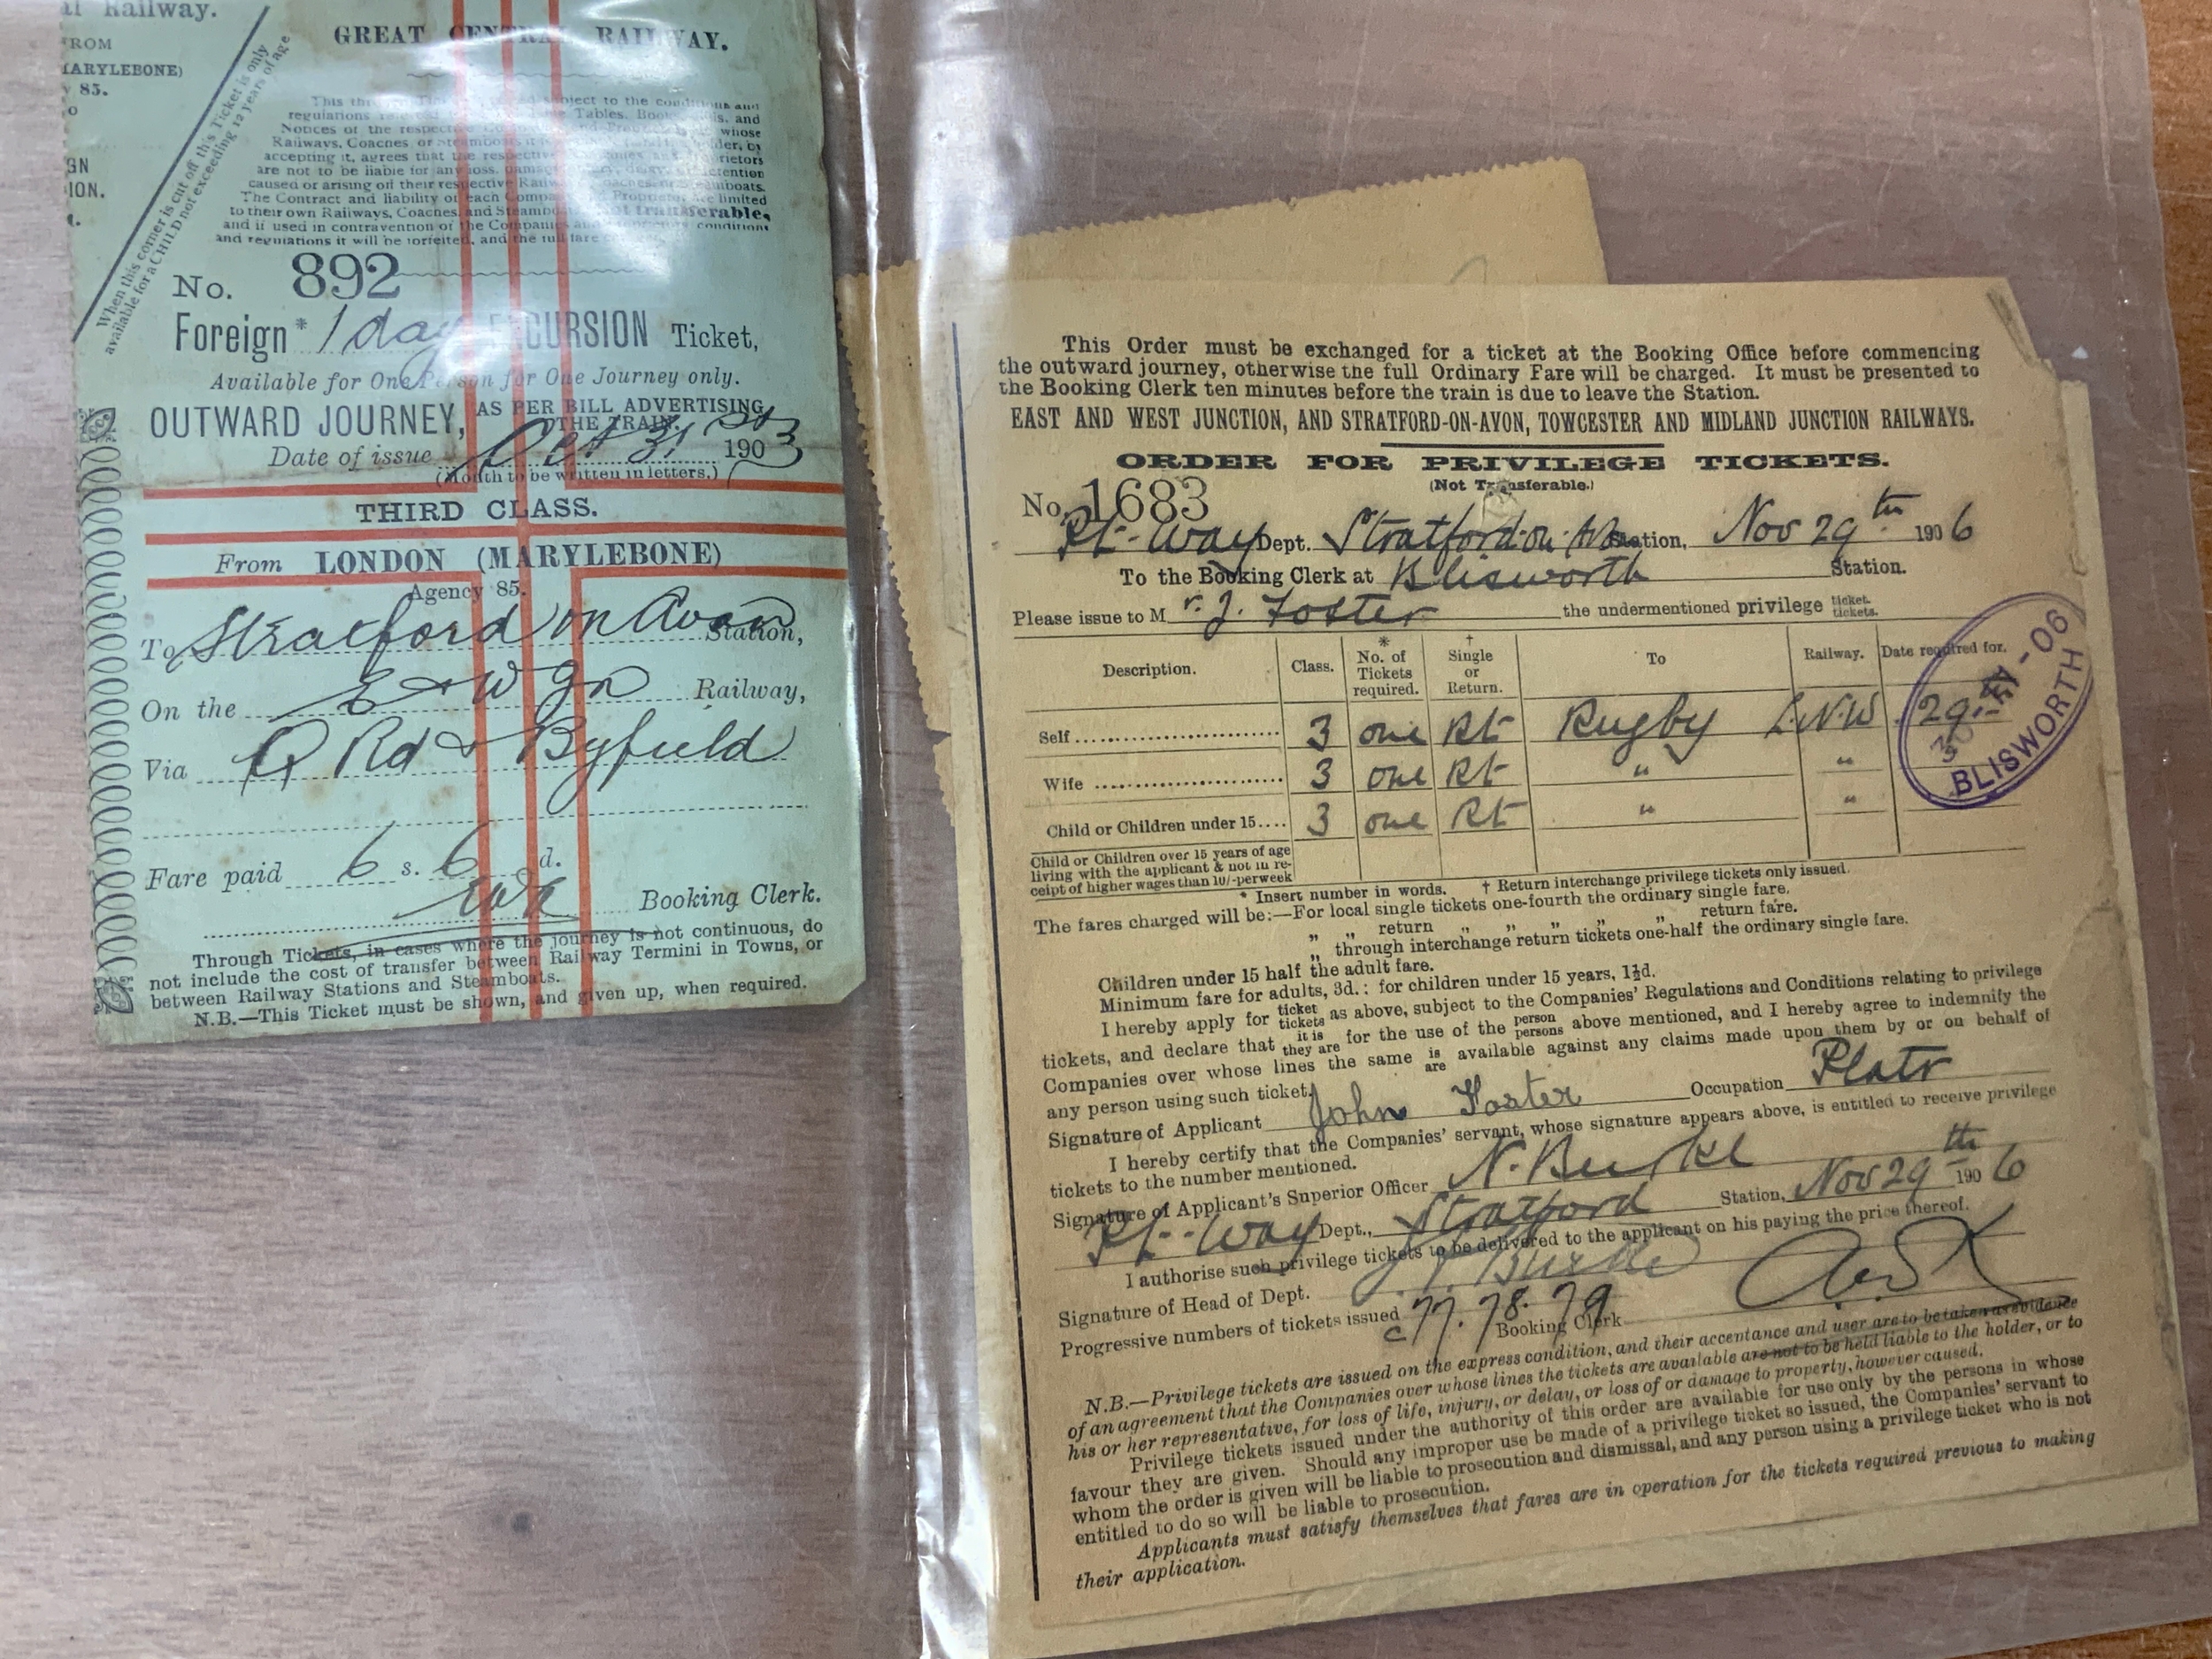 al Railway.
ROM
MARYLEBONE)
85.
o
GN
ION.
When this corner is cut off this Ticket is only
available for a CHILD not exceeding 12 years of age
GREAT CENTRAL RAILWAY.
This subject to the conditions and
regulations Tables, Books, and
Notices of the respective whose
Railways, Coaches, or Steamboats by
accepting it, agrees that the respective
are not to be liable for any loss, detention
caused or arising off their respective
The Contract and liability of each limited
to their own Railways, Coaches, and transferable,
and if used in contravention of the Companies conditions
and regulations it will be forfeited, and the full fare
No. 892
Foreign * 1 day EXCURSION Ticket,
Available for One Person for One Journey only.
OUTWARD JOURNEY, AS PER BILL ADVERTISING
THE TRAIN.
Date of issue Oct 31 1903
(Month to be written in letters.)
THIRD CLASS.
From LONDON (MARYLEBONE)
Agency 85.
To Stratford on Avon Station,
On the E & W Jn Railway,
Via Rd & Byfield
Fare paid 6 s. 6 d.
Booking Clerk.
Through Tickets, in cases where the journey is not continuous, do
not include the cost of transfer between Railway Termini in Towns, or
between Railway Stations and Steamboats.
N.B.—This Ticket must be shown, and given up, when required.
This Order must be exchanged for a ticket at the Booking Office before commencing
the outward journey, otherwise the full Ordinary Fare will be charged. It must be presented to
the Booking Clerk ten minutes before the train is due to leave the Station.
EAST AND WEST JUNCTION, AND STRATFORD-ON-AVON, TOWCESTER AND MIDLAND JUNCTION RAILWAYS.
ORDER FOR PRIVILEGE TICKETS.
(Not Transferable.)
No. 1683
Pt-Way Dept. Stratford-on-Av Station, Nov 29th 1906
To the Booking Clerk at Blisworth Station.
Please issue to Mr. J. Foster the undermentioned privilege ticket. tickets.
Description. Class. * No. of Tickets required. † Single or Return. To Railway. Date required for.
Self 3 one Rt Rugby L.N.W. 29
Wife 3 one Rt " "
Child or Children under 15 3 one Rt " "
06
BLISWORTH
Child or Children over 15 years of age
living with the applicant & not in re-
ceipt of higher wages than 10/- per week
* Insert number in words. † Return interchange privilege tickets only issued.
The fares charged will be:—For local single tickets one-fourth the ordinary single fare.
" " return " " " " return fare.
" through interchange return tickets one-half the ordinary single fare.
Children under 15 half the adult fare.
Minimum fare for adults, 3d.: for children under 15 years, 1½d.
I hereby apply for ticket tickets as above, subject to the Companies' Regulations and Conditions relating to privilege
tickets, and declare that it is they are for the use of the person persons above mentioned, and I hereby agree to indemnify the
Companies over whose lines the same is are available against any claims made upon them by or on behalf of
any person using such ticket.
Signature of Applicant John Foster Occupation Platr
I hereby certify that the Companies' servant, whose signature appears above, is entitled to receive privilege
tickets to the number mentioned.
Signature of Applicant's Superior Officer N. Burke
Pt-Way Dept., Stratford Station, Nov 29th 1906
I authorise such privilege tickets to be delivered to the applicant on his paying the price thereof.
Signature of Head of Dept. Burke
Progressive numbers of tickets issued c77. 78. 79 Booking Clerk
N.B.—Privilege tickets are issued on the express condition, and their acceptance and user are to be taken as evidence
of an agreement that the Companies over whose lines the tickets are available are not to be held liable to the holder, or to
his or her representative, for loss of life, injury, or delay, or loss of or damage to property, however caused.
Privilege tickets issued under the authority of this order are available for use only by the persons in whose
favour they are given. Should any improper use be made of a privilege ticket so issued, the Companies' servant to
whom the order is given will be liable to prosecution and dismissal, and any person using a privilege ticket who is not
entitled to do so will be liable to prosecution.
Applicants must satisfy themselves that fares are in operation for the tickets required previous to making
their application.